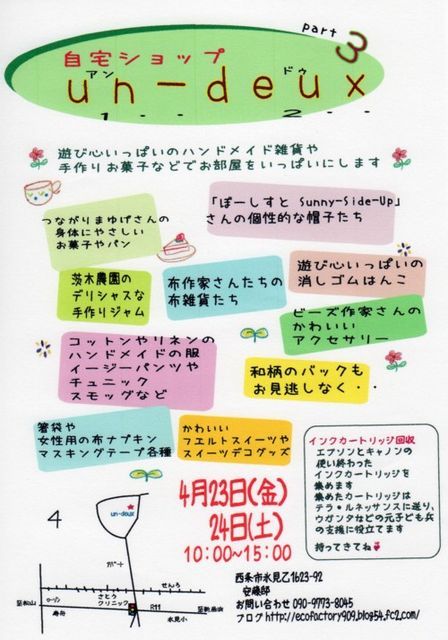 part 3
自宅ショップ
アン ドゥ
un-deux
1・・・ 2・・・
遊び心いっぱいのハンドメイド雑貨や
手作りお菓子などでお部屋をいっぱいにします
つながりまゆげさんの
身体にやさしい
お菓子やパン
「ぽーしすと Sunny-Side-Up」
さんの個性的な帽子たち
茨木農園の
デリシャスな
手作りジャム
布作家さんたちの
布雑貨たち
遊び心いっぱいの
消しゴムはんこ
ビーズ作家さんの
かわいい
アクセサリー
コットンやリネンの
ハンドメイドの服
イージーパンツや
チュニック
スモッグなど
和柄のバックも
お見逃しなく・・
箸袋や
女性用の布ナプキン
マスキングテープ各種
かわいい
フエルトスイーツや
スイーツデコグッズ
インクカートリッジ回収
エプソンとキャノンの
使い終わった
インクカートリッジを
集めます
集めたカートリッジは
テラ・ルネッサンスに送り、
ウガンダなどの元子ども兵
の支援に役立てます
持ってきてね
4月23日(金)
24日(土)
10:00~15:00
4
un-deux
せんろ
さとう
クリニック
至松山
R11
氷見小
西条市氷見乙1623-92
安藤邸
お問い合わせ 090-9773-8045
ブログ http://ecofactory909.blog54.fc2.com/